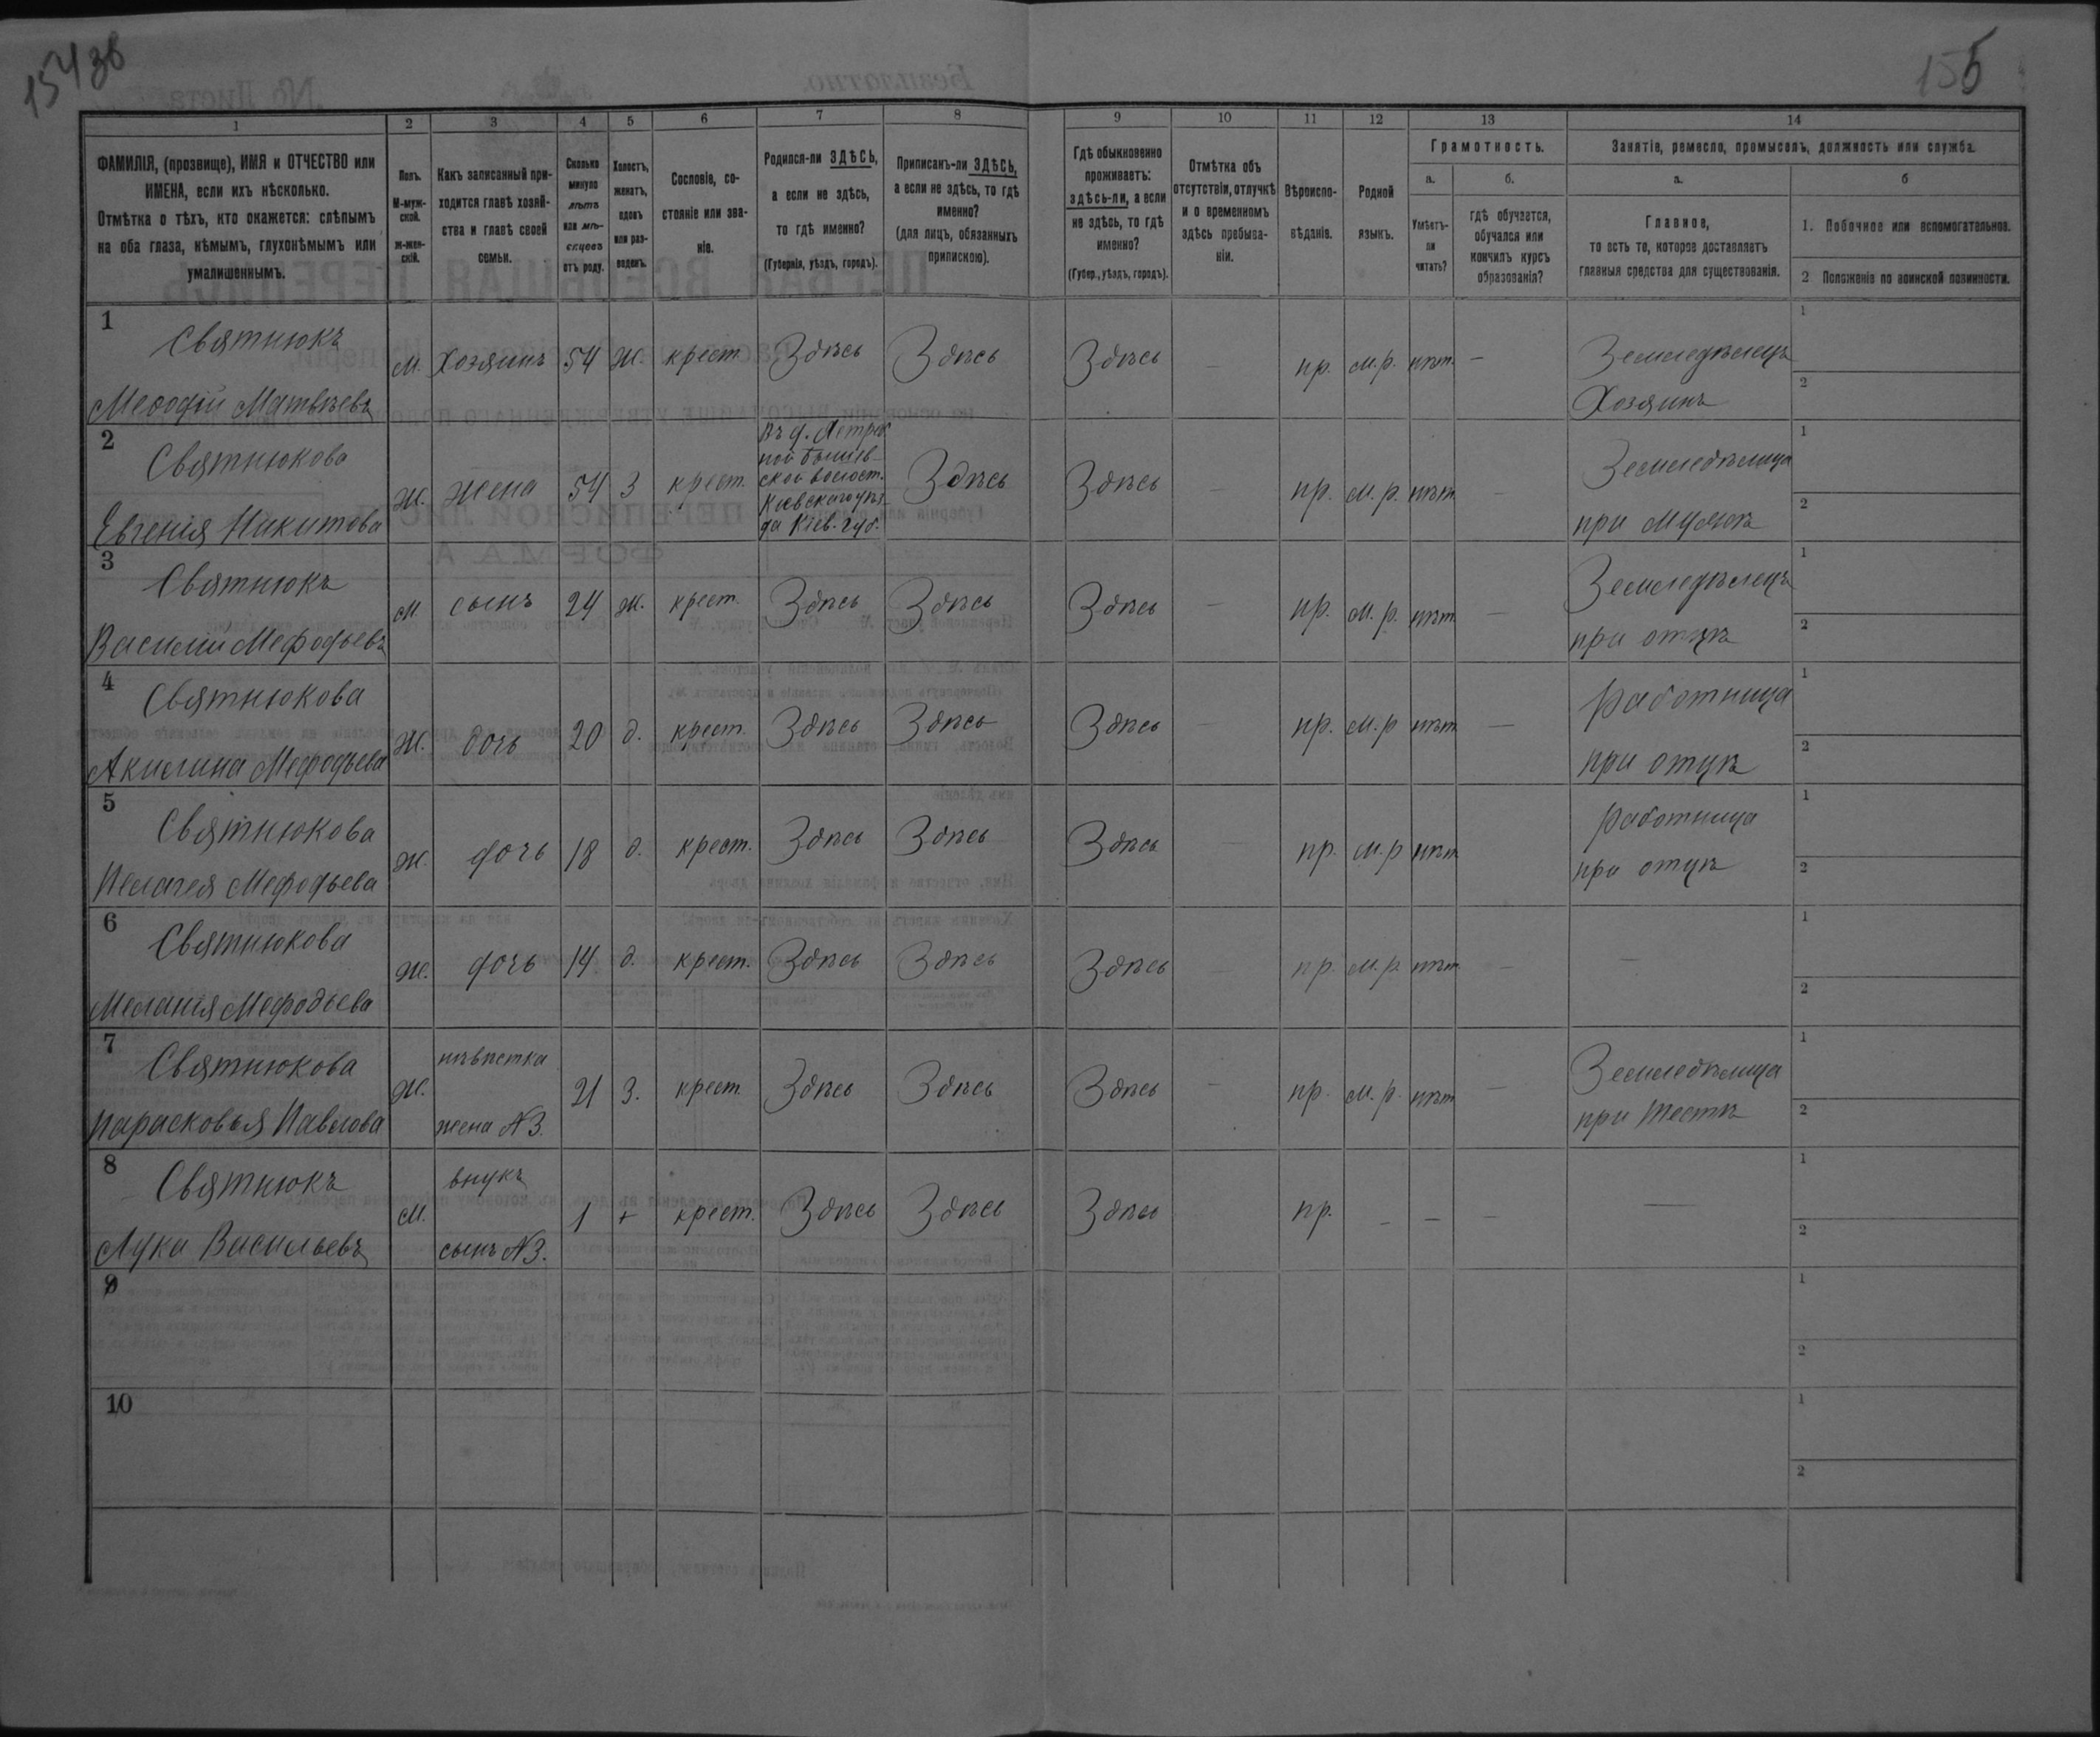 154 зв
155
1
2
3
4
5
6
7
8
9
10
11
12
13
14
ФАМИЛІЯ, (прозвище), ИМЯ и ОТЧЕСТВО или
ИМЕНА, если ихъ нѣсколько.
Отмѣтка о тѣхъ, кто окажется: слѣпымъ
на оба глаза, нѣмымъ, глухонѣмымъ или
умалишеннымъ.
Полъ.
М-муж-
ской.
ж-жен-
скій.
Какъ записанный при-
ходится главѣ хозяй-
ства и главѣ своей
семьи.
Сколько
минуло
лѣтъ
или мѣ-
сяцевъ
отъ роду.
Холостъ,
женатъ,
вдовъ
или раз-
веденъ.
Сословіе, со-
стояніе или зва-
ніе.
Родился-ли ЗДѢСЬ,
а если не здѣсь,
то гдѣ именно?
(Губернія, уѣздъ, городъ).
Приписанъ-ли ЗДѢСЬ,
а если не здѣсь, то гдѣ
именно?
(для лицъ, обязанныхъ
припискою).
Гдѣ обыкновенно
проживаетъ:
здѣсь-ли, а если
не здѣсь, то гдѣ
именно?
(Губер., уѣздъ, городъ).
Отмѣтка объ
отсутствіи, отлучкѣ
и о временномъ
здѣсь пребыва-
ніи.
Вѣроиспо-
вѣданіе.
Родной
языкъ.
Грамотность.
а.
б.
Умѣетъ-
ли
читать?
гдѣ обучается,
обучался или
кончилъ курсъ
образованія?
Занятіе, ремесло, промыселъ, должность или служба.
а.
б
Главное,
то есть то, которое доставляетъ
главныя средства для существованія.
1. Побочное или вспомогательное.
2 Положеніе по воинской повинности.
1
Святнюкъ
Меѳодій Матвѣевъ
м. Хозяинъ 54 ж. крест. Здѣсь Здѣсь Здѣсь — пр. м.р. нѣт. —
Земледѣлецъ
Хозяинъ
1
2
2
Святнюкова
Евгенія Никитова
ж. жена 54 З крест.
Въ д. Петров
ской волост.
Кіевскаго уѣз
да Кіев. губ.
Здѣсь Здѣсь — пр. м. р. нѣт —
Земледѣлица
при мужѣ
1
2
3
Святнюкъ
Василій Мефодьевъ
м сынъ 24 ж. крест. Здѣсь Здѣсь Здѣсь — пр. м. р. нѣт —
Земледѣлецъ
при отцѣ
1
2
4
Святнюкова
Акилина Мефодьева
ж. дочь 20 д. крест. Здѣсь Здѣсь Здѣсь — пр. м.р нѣт —
Работница
при отцѣ
1
2
5
Святнюкова
Пелагея Мефодьева
ж. дочь 18 д. крест. Здѣсь Здѣсь Здѣсь — пр. м.р нѣт
Работница
при отцѣ
1
2
6
Святнюкова
Меланія Мефодьева
ж. дочь 14 д. крест. Здѣсь Здѣсь Здѣсь — пр. м.р нѣт — —
1
2
7
Святнюкова
Парасковья Павлова
ж.
нѣвѣстка
жена № 3.
21 З. крест. Здѣсь Здѣсь Здѣсь — пр. м. р. нѣт —
Земледѣлица
при Тестѣ
1
2
8
Святнюкъ
Лука Васильевъ
м.
внукъ
сынъ № 3.
1 + крест. Здѣсь Здѣсь Здѣсь пр. — — — —
1
2
9
1
2
10
1
2